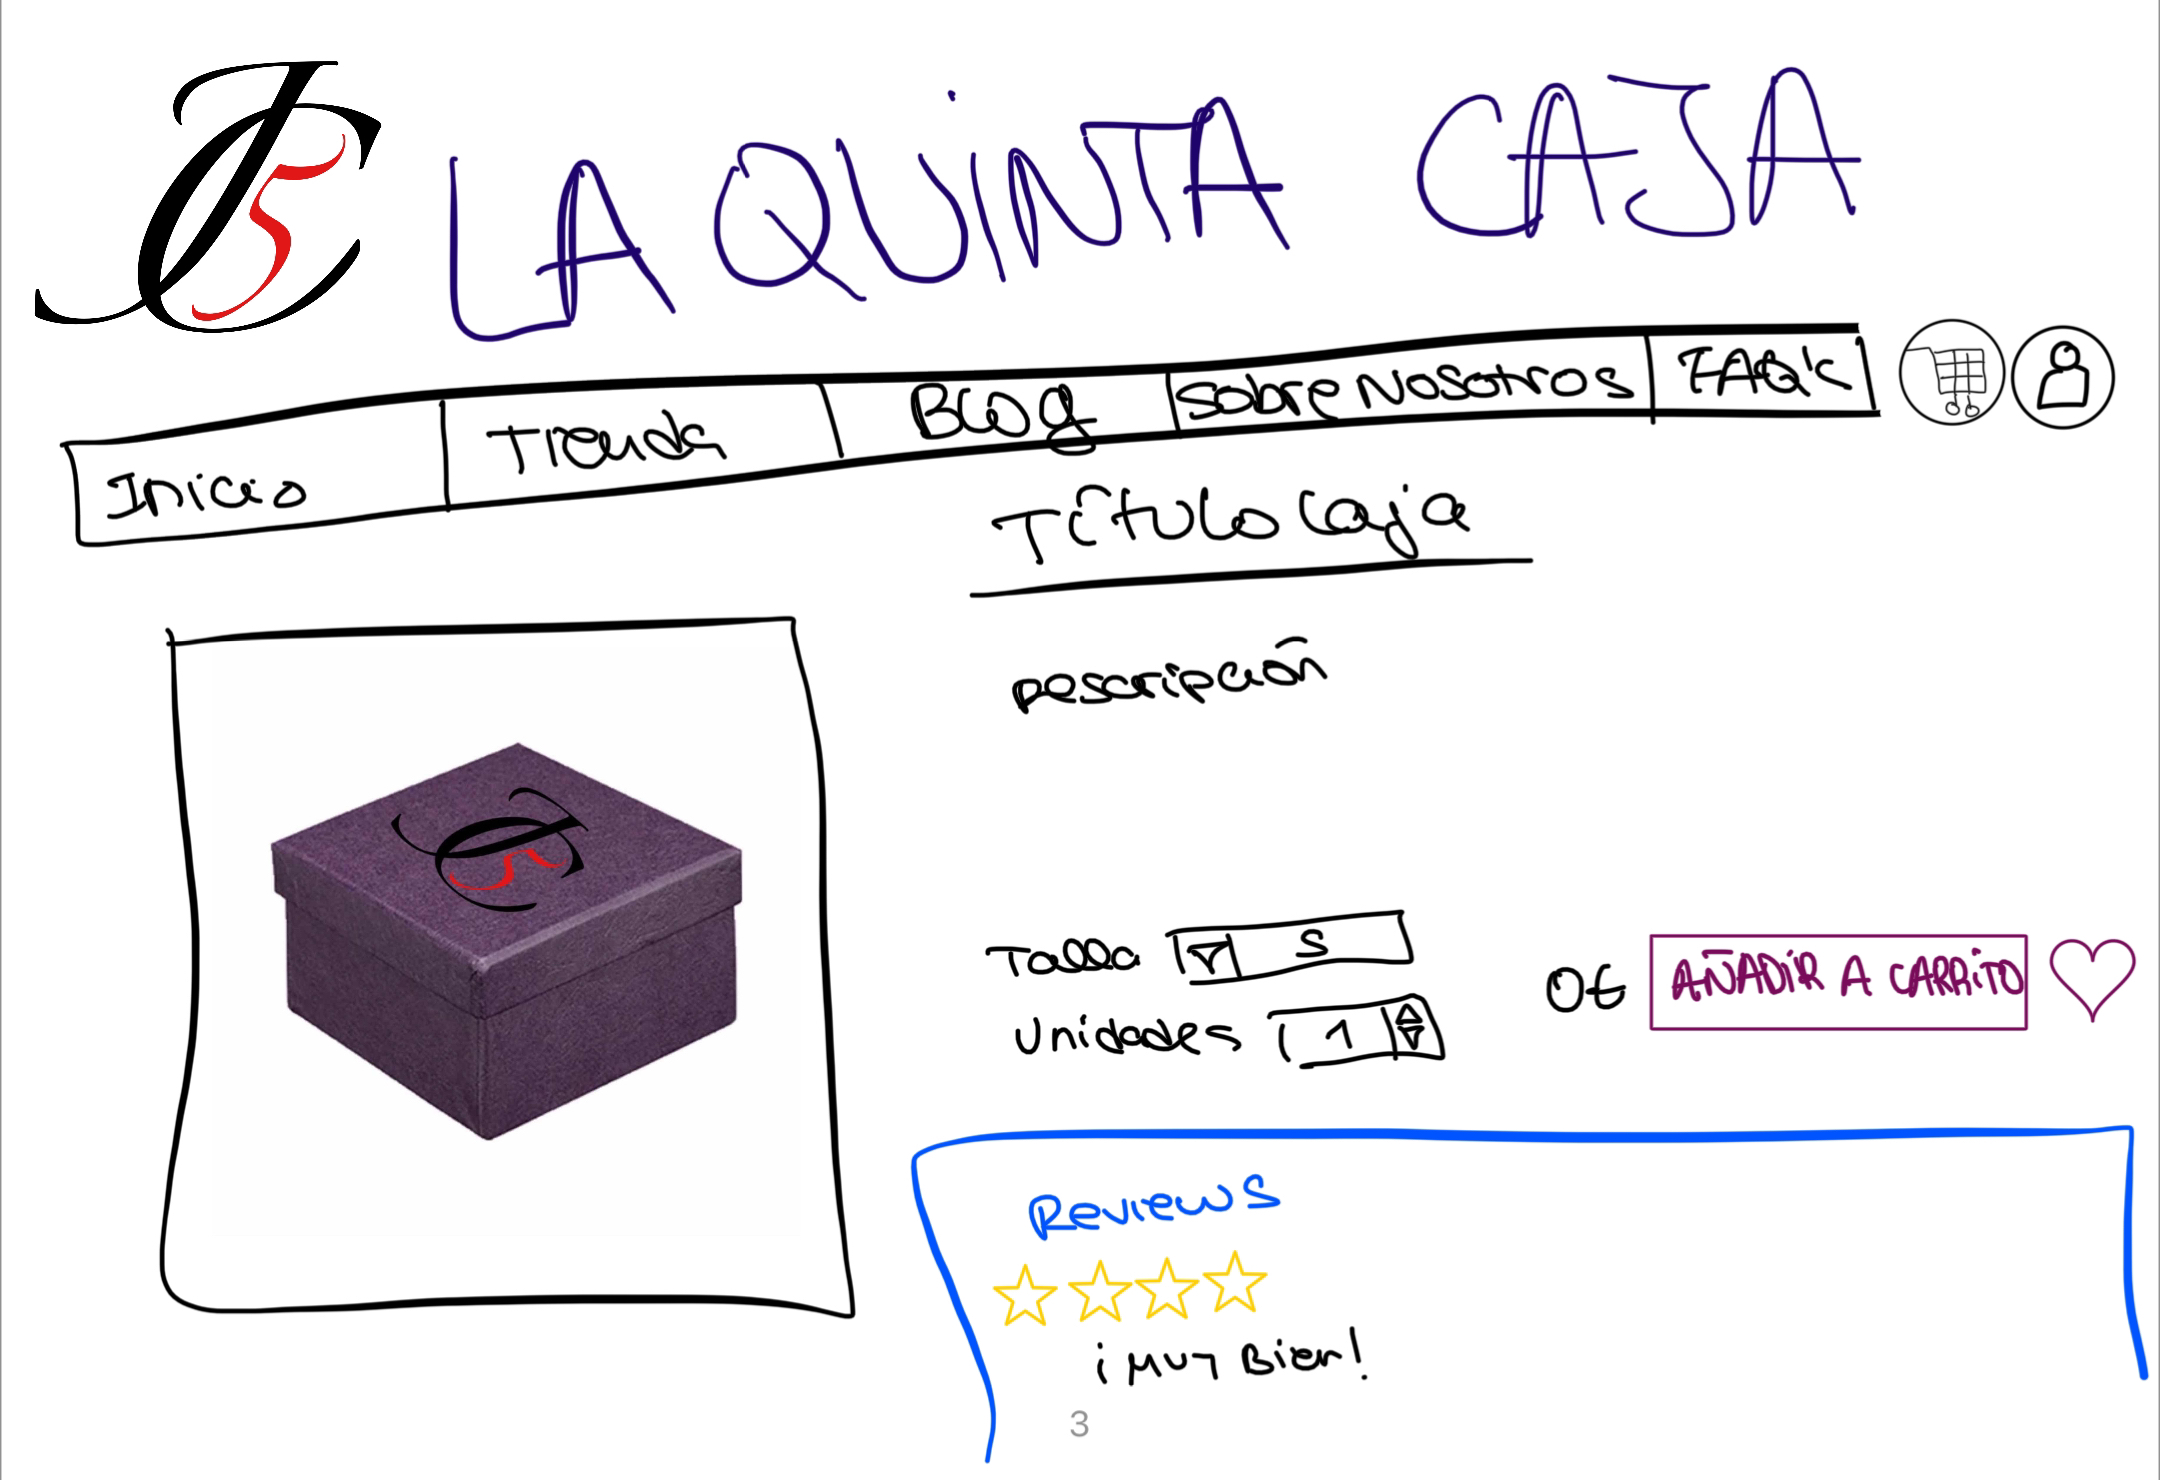 LA QUINTA CAJA
Inicio Tienda Blog Sobre Nosotros FAQ's
Título Caja
Descripción
Talla S
Unidades 1
0€ AÑADIR A CARRITO
Reviews
¡Muy Bien!
3